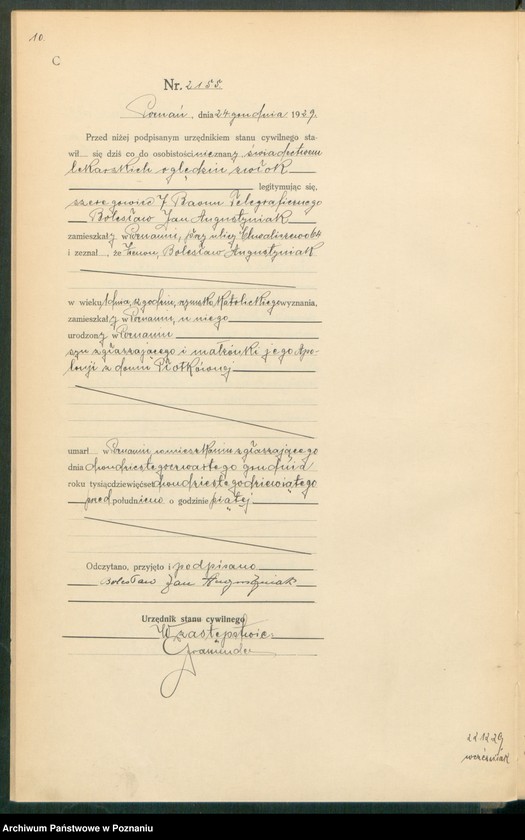 10.
C
Nr. 2155.
Poznań, dnia 24 grudnia 1929.
Przed niżej podpisanym urzędnikiem stanu cywilnego sta-
wił się dziś co do osobistości nieznany, świadectwem
lekarskich oględzin zwłok
legitymując się,
szeregowiec 7. Baonu Telegraficznego
Bolesław Jan Augustyniak
zamieszkały w Poznaniu, przy ulicy Chwaliszewo 64
i zeznał, że Zenon, Bolesław Augustyniak
w wieku 1 dnia, godzin, rzymsko katolickiego wyznania,
zamieszkały w Poznaniu, u niego
urodzony w Poznaniu
syn zgłaszającego i małżonki jego Apo-
lonji z domu
umarł w Poznaniu, w mieszkaniu zgłaszającego
dnia dwudziestegoczwartego grudnia
roku tysiącdziewięćset dwudziestegodziewiątego
przed południem o godzinie piątej
Odczytano, przyjęto i podpisano
Bolesław Jan Augustyniak
Urzędnik stanu cywilnego
W zastępstwie:
22 12 29
Archiwum Państwowe w Poznaniu